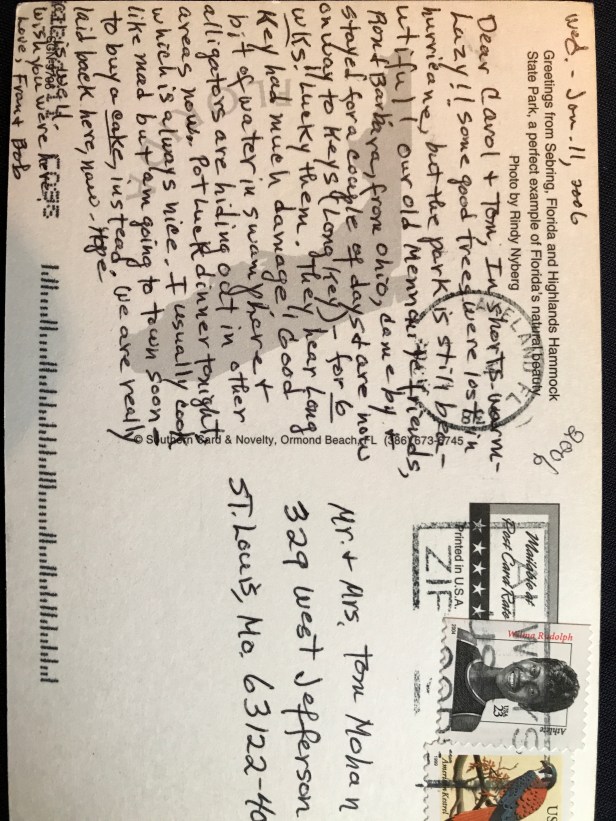 Wed. - Jan. 11, 2006
Greetings from Sebring, Florida and Highlands Hammock
State Park, a perfect example of Florida's natural beauty.
Photo by Rindy Nyberg
Dear Carol & Tom, In shorts-warm-
Lazy!! Some good trees were lost in
hurricane, but the park is still bea-
utiful! Our old friends,
Ron & Barbara, from Ohio, came by &
stayed for a couple of days & are now
on way to Keys (Long Key) - for 6
wks! Lucky them. They hear Long
Key had much damage! Good
bit of water in swamp here &
alligators are hiding out in other
areas now. Pot Luck dinner tonight
which is always nice. I usually cook
like mad but am going to town soon
to buy a cake, instead. We are really
laid back here, now - Hope
wish you were here!
Love, Fran & Bob
© Southern Card & Novelty, Ormond Beach, FL (386) 673-3745
Mailable at
Post Card Rate
Printed in U.S.A.
ZIP
Wilma Rudolph
USA 23
Athlete
2004
American Kestrel
US
Mr. & Mrs. Tom Mohan
329 West Jefferson
ST. Louis, Mo. 63122-40
FLORIDA